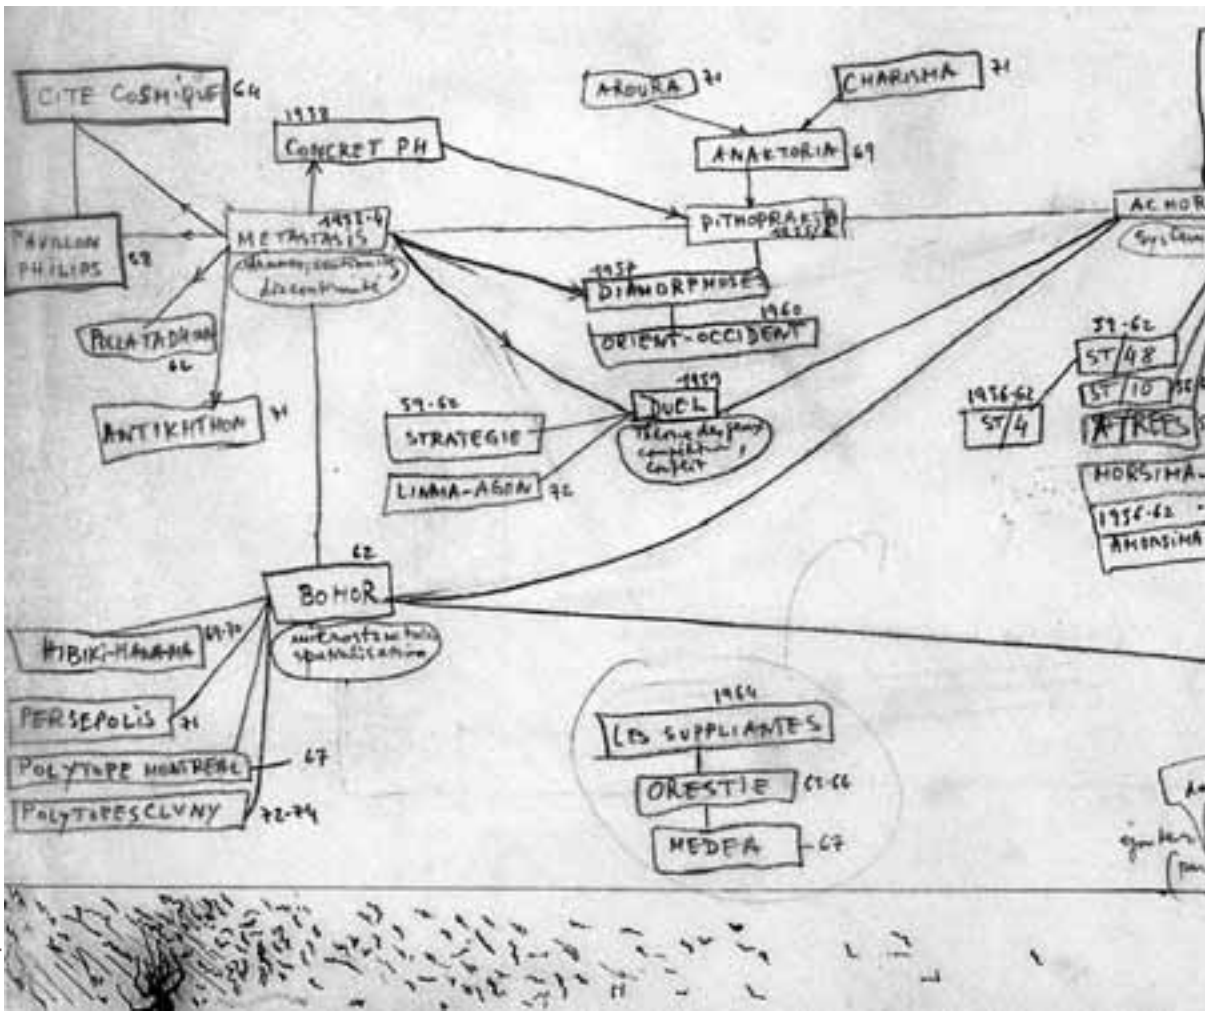 CITÉ COSMIQUE 64
1958
CONCRET PH
AROURA 71
CHARISMA 71
ANAKTORIA 69
PAVILLON
PHILIPS 58
1953-4
METASTASIS
discontinuité
PITHOPRAKTA
1955/6
ACHOR
System
1957
DIAMORPHOSES
1960
ORIENT-OCCIDENT
POLLA TA DHINA
62
ANTIKHTHON 71
59-62
STRATEGIE
LINAIA-AGON 72
1959
DUEL
théorie des jeux
compétition,
conflit
59-62
ST/48
ST/10
1956-62
ST/4
ATREES
MORSIMA-
1956-62
AMORSIMA
62
BOHOR
microstructures
spatialisation
HIBIKI-HANA-MA 69-70
PERSEPOLIS 71
POLYTOPE MONTREAL 67
POLYTOPES CLUNY 72-74
1964
LES SUPPLIANTES
ORESTIE 65-66
MEDEA 67